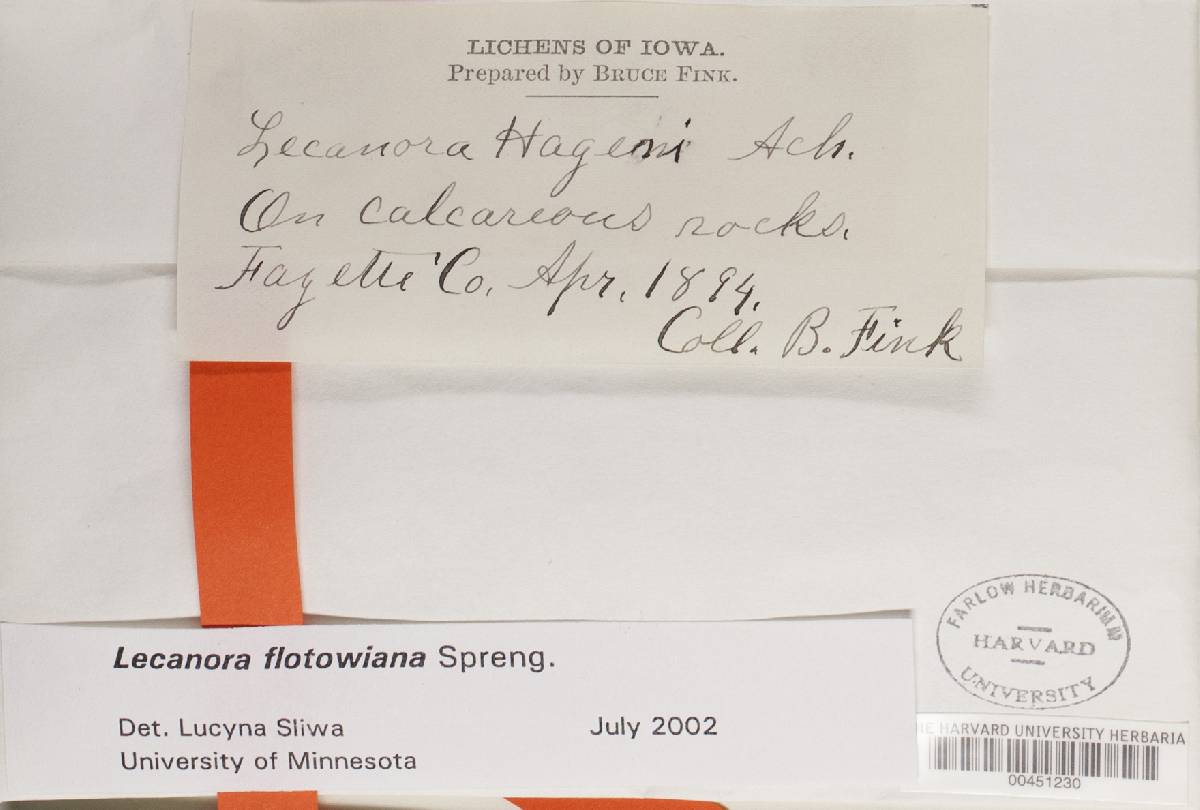 LICHENS OF IOWA.
Prepared by BRUCE FINK.
Lecanora Hageni Ach.
On calcareous rocks.
Fayette Co. Apr. 1894.
Coll. B. Fink
Lecanora flotowiana Spreng.
Det. Lucyna Sliwa July 2002
University of Minnesota
FARLOW HERBARIUM
HARVARD
UNIVERSITY
HARVARD UNIVERSITY HERBARIA
00451230